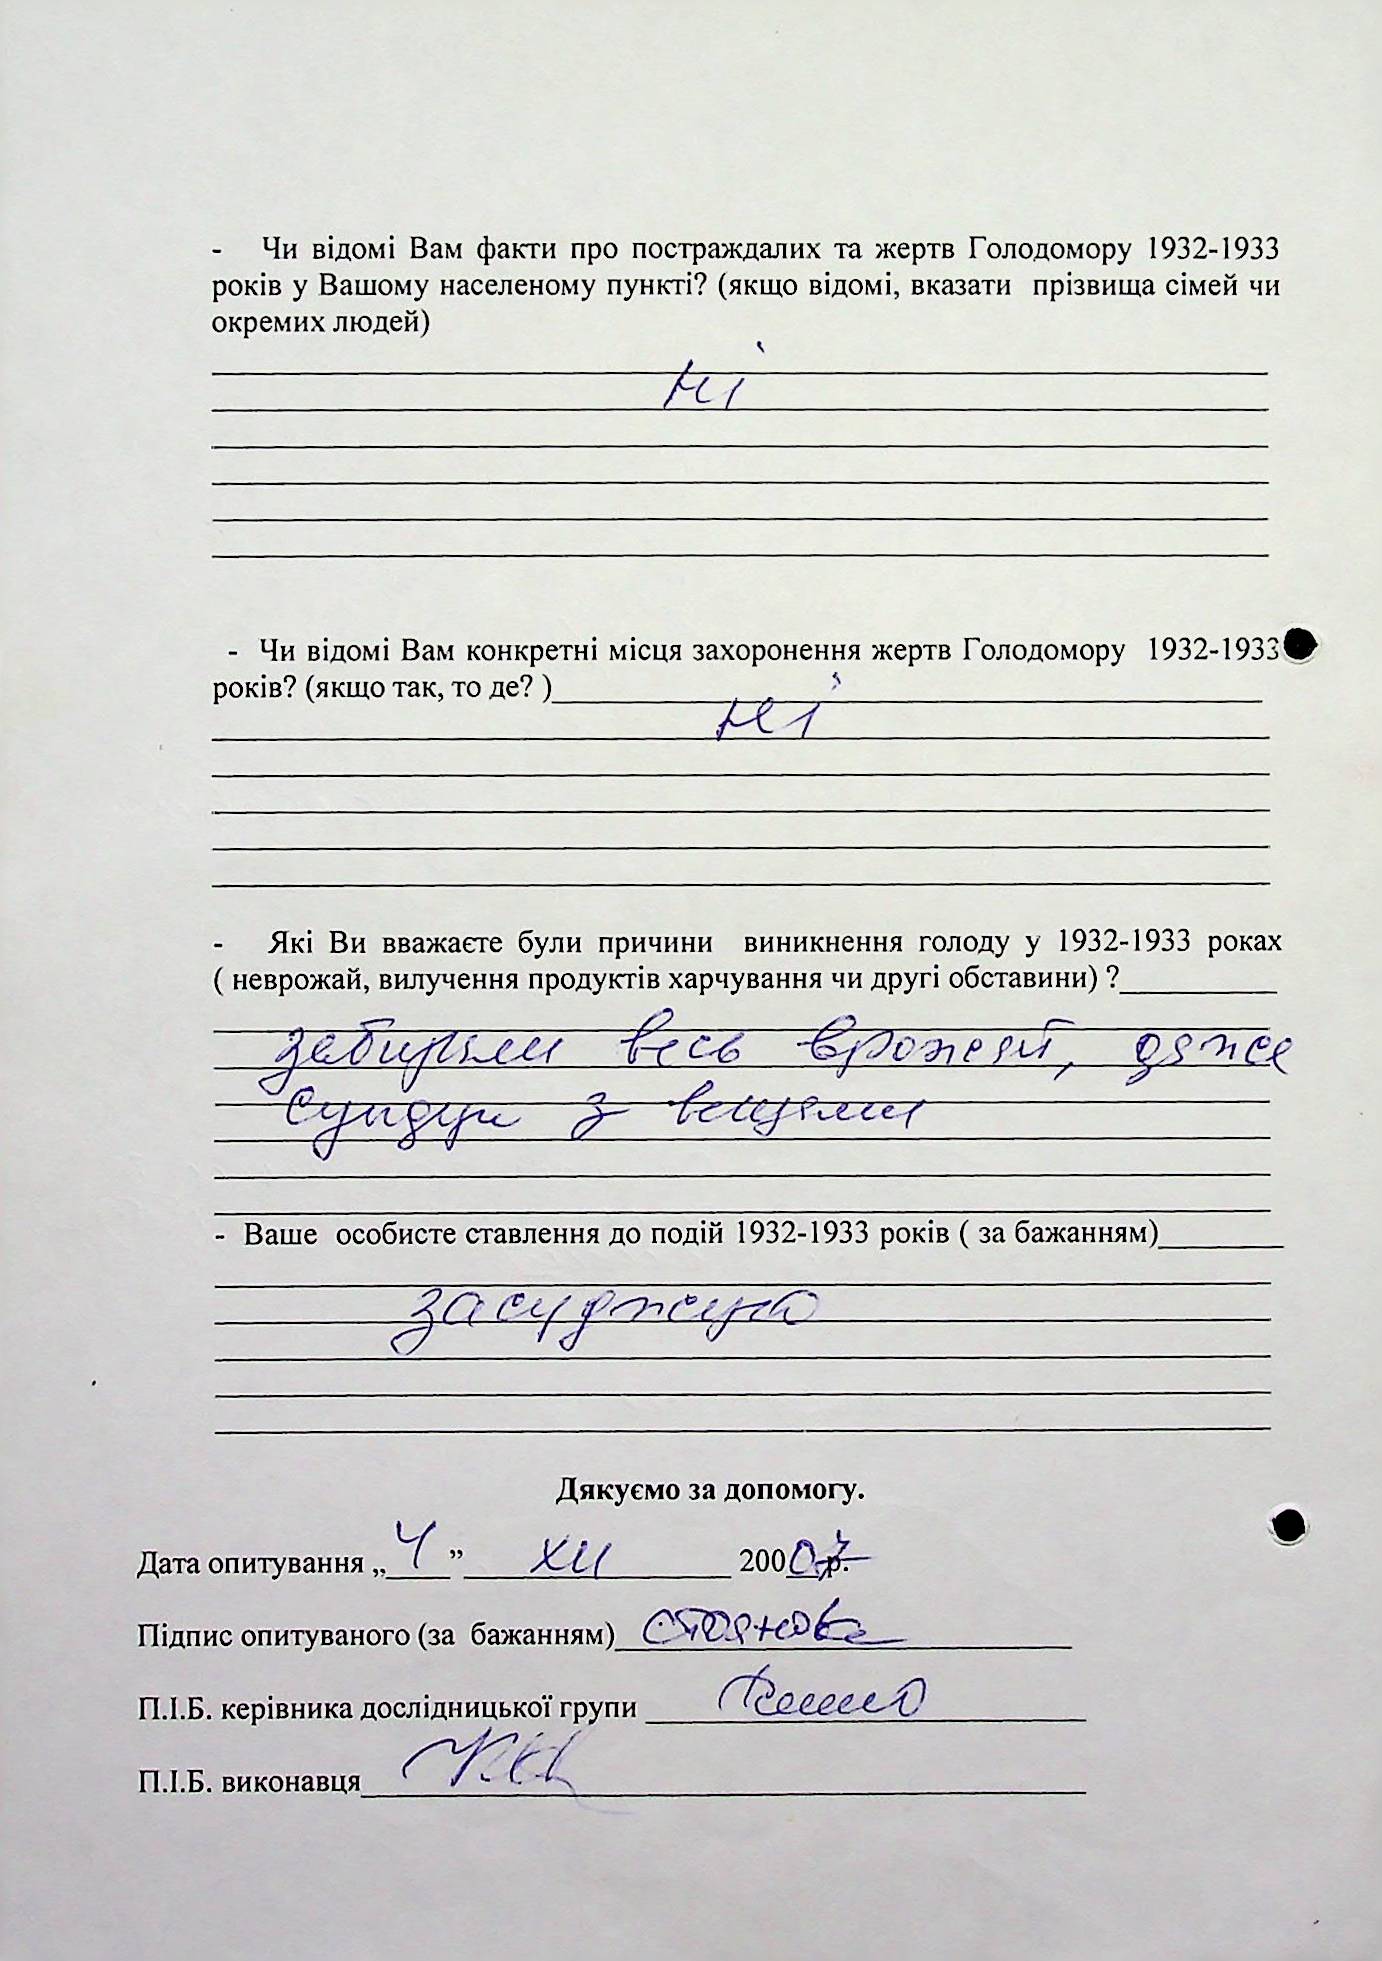 - Чи відомі Вам факти про постраждалих та жертв Голодомору 1932-1933
років у Вашому населеному пункті? (якщо відомі, вказати прізвища сімей чи
окремих людей)
ні
- Чи відомі Вам конкретні місця захоронення жертв Голодомору 1932-1933
років? (якщо так, то де? )
ні
- Які Ви вважаєте були причини виникнення голоду у 1932-1933 роках
( неврожай, вилучення продуктів харчування чи другі обставини) ?
забирали весь врожай, даже
сундуки з вещами
- Ваше особисте ставлення до подій 1932-1933 років ( за бажанням)
засуджую
Дякуємо за допомогу.
Дата опитування „4” XII 20007р.
Підпис опитуваного (за бажанням) Стоянова
П.І.Б. керівника дослідницької групи
П.І.Б. виконавця